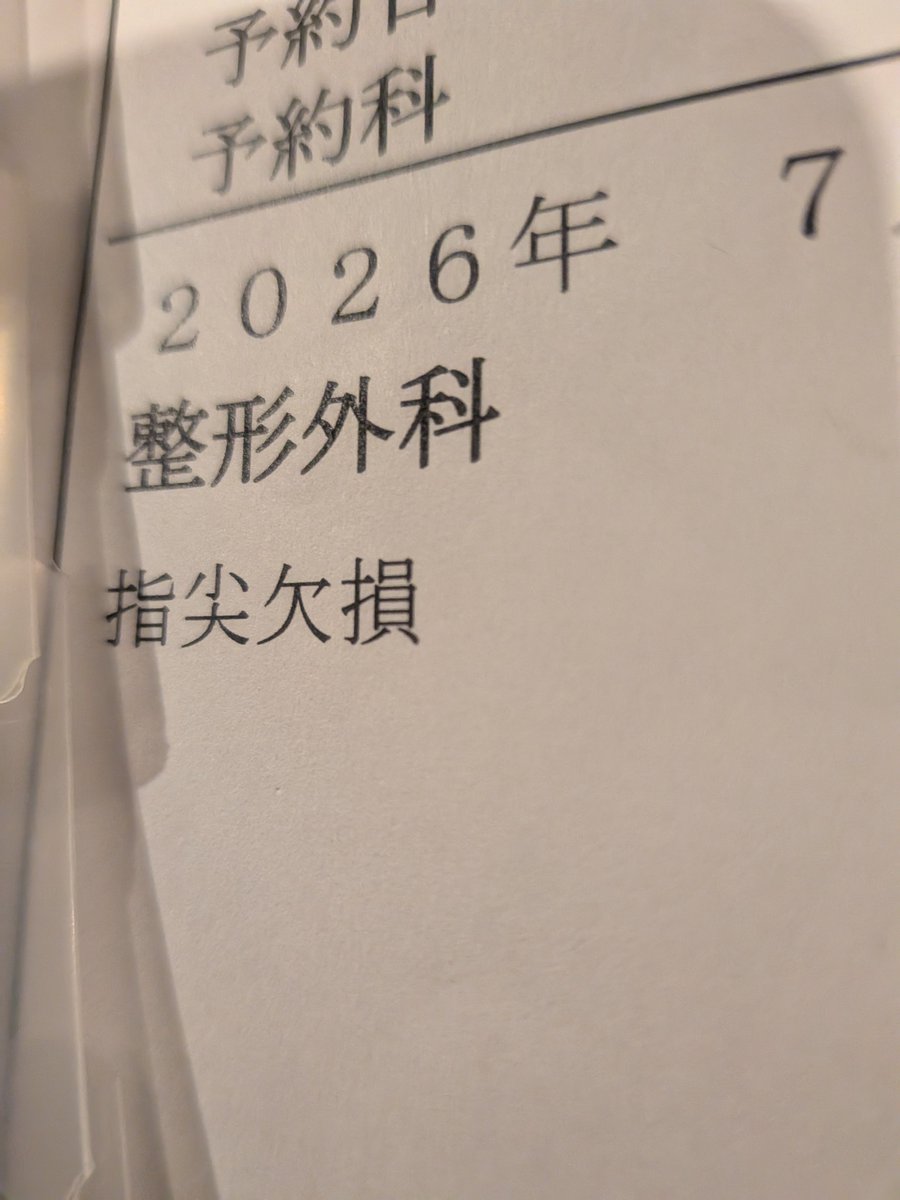 予約日
予約科
２０２６年　７
整形外科
指尖欠損